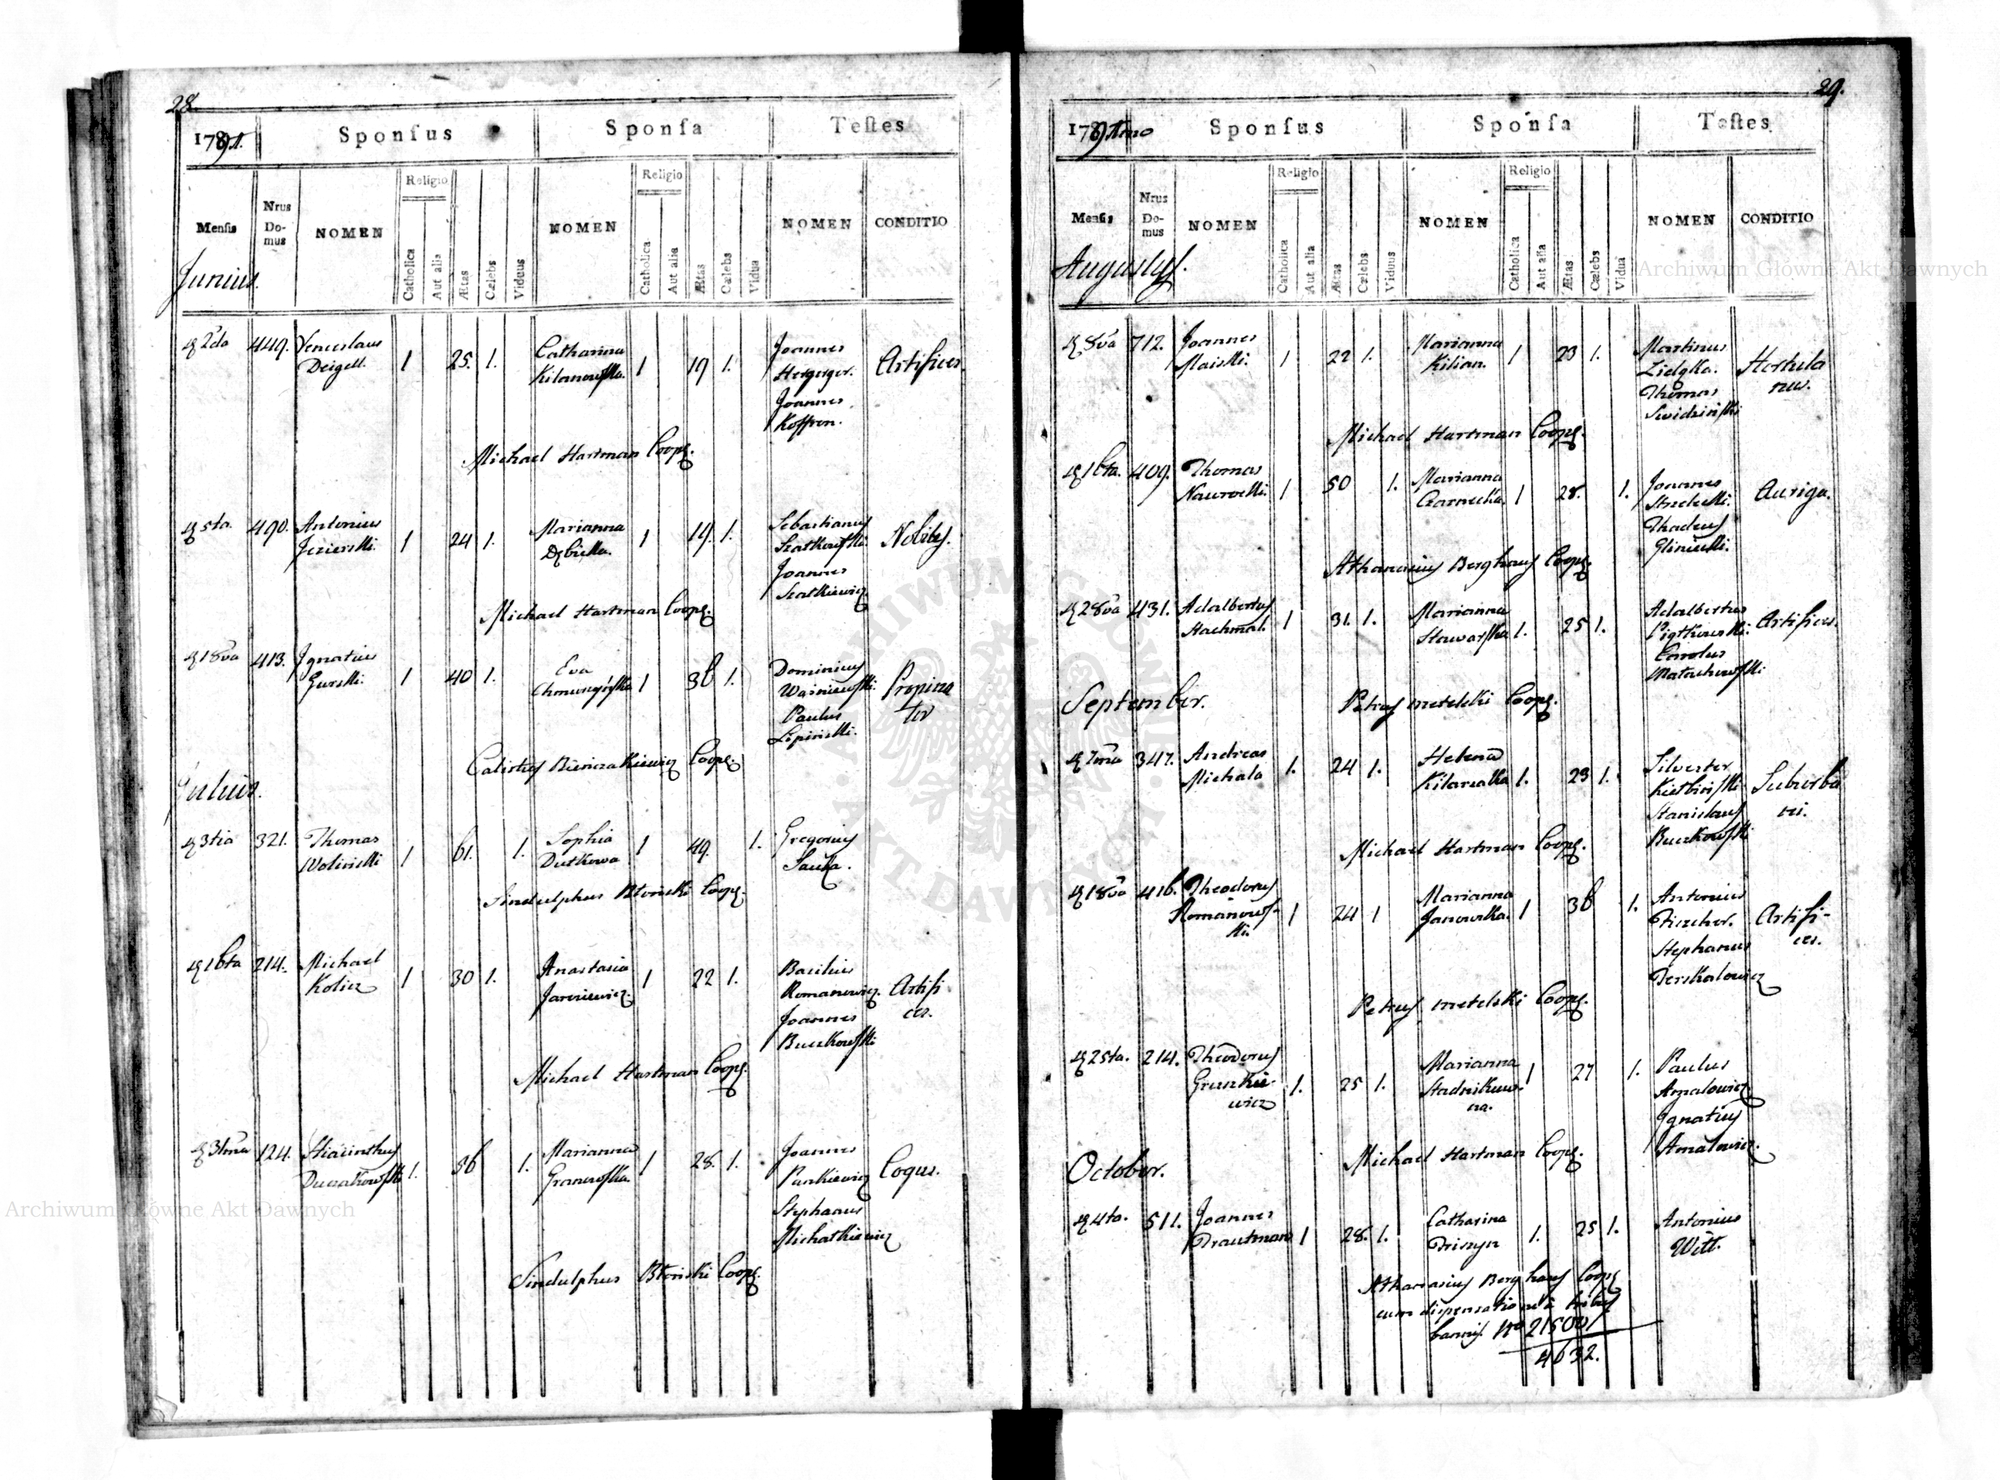 28.
1791.
Sponsus
Sponsa
Testes
Mensis
Nrus Domus
NOMEN
Religio
Catholica
Aut alia
Ætas
Cælebs
Viduus
NOMEN
Religio
Catholica
Aut alia
Ætas
Cælebs
Vidua
NOMEN
CONDITIO
Junius.
2da 449. Venceslaus 1 25. 1. Catharina 1 19 1. Joannes Artifices.
Deigell. Kilanowska.
Joannes
Michael Hartman Coop.
5ta 490. Antonius 1 24 1. Marianna 1 19. 1. Sebastianus Nobiles.
Jezierski. Dębicka. Szatkowski.
Joannes
Szatkiewicz
Michael Hartman Coop.
18va 413. Ignatius 1 40 1. Eva 1 36 1. Dominicus Propina
Gurski. Waśniewski. tor
Paulus
Lipinski.
Calixtus Bieńczakiewicz Coop.
Julius.
3tia 321. Thomas 1 61. 1. Sophia 1 49. 1. Gregorius
Wolinski Dutkowa
Sindulphus Błonski Coop.
16ta 214. Michael 1 30 1. Anastasia 1 22 1. Basilius Artifi
Kolicz Jarosiewicz. Romanowicz. ces.
Joannes
Buczkowski
Michael Hartman Coop.
31ma 124. Hiacinthus 1. 56 1. Marianna 1 28. 1. Joannes Coqus.
Duczakowski Granowska. Pankiewicz
Stephanus
Michałkiewicz
Sindulphus Błonski Coop.
29.
1791mo
Sponsus
Sponsa
Testes
Mensis
Nrus Domus
NOMEN
Religio
Catholica
Aut alia
Ætas
Cælebs
Viduus
NOMEN
Religio
Catholica
Aut alia
Ætas
Cælebs
Vidua
NOMEN
CONDITIO
Augustus.
8va 712. Joannes 1 22 1. Marianna 1 23 1. Martinus Hortula
Maiski. Kilian. Zielęka. nus.
Thomas
Swidziński
Michael Hartman Coop.
16ta. 409. Thomas 1 50 1. Marianna 1 28. 1. Joannes Auriga.
Nawrocki. Czarnecka.
Thadeus
Gliniecki.
Athanasius Berghaus Coop.
28va 431. Adalbertus 1 31. 1. Marianna 1. 25 1. Adalbertus Artifices.
Stachmal. Stawarska Piątkowski.
Carolus
Małachowski
September.
Petrus Metelski Coop.
7ma 347. Andreas 1. 24 1. Helena 1. 23 1. Silvester Suburba
Michala Kilarecka Kiełbiński ni.
Stanislaus
Buczkowski
Michael Hartman Coop.
18va 416. Theodorus 1 24 1 Marianna 1 36 1. Antonius Artifi-
Romanows- Janowska. Fischer. ces.
ki. Stephanus
Derskalowicz
Petrus Metelski Coop.
25ta. 214. Theodorus 1. 25 1. Marianna 1 27 1. Paulus
Gruszkie- Stadnikow- Amalowicz
wicz na. Ignatius
Amalowicz.
Michael Hartman Coop.
October.
4ta. 511. Joannes 1 28. 1. Catharina 1. 25 1. Antonius
Trautman Witt.
Athanasius Berghaus Coop
cum dispensatione à tribus
bannis. No 21500/
4632.
Archiwum Główne Akt Dawnych
Archiwum Główne Akt Dawnych
ARCHIWUM GŁÓWNE AKT DAWNYCH